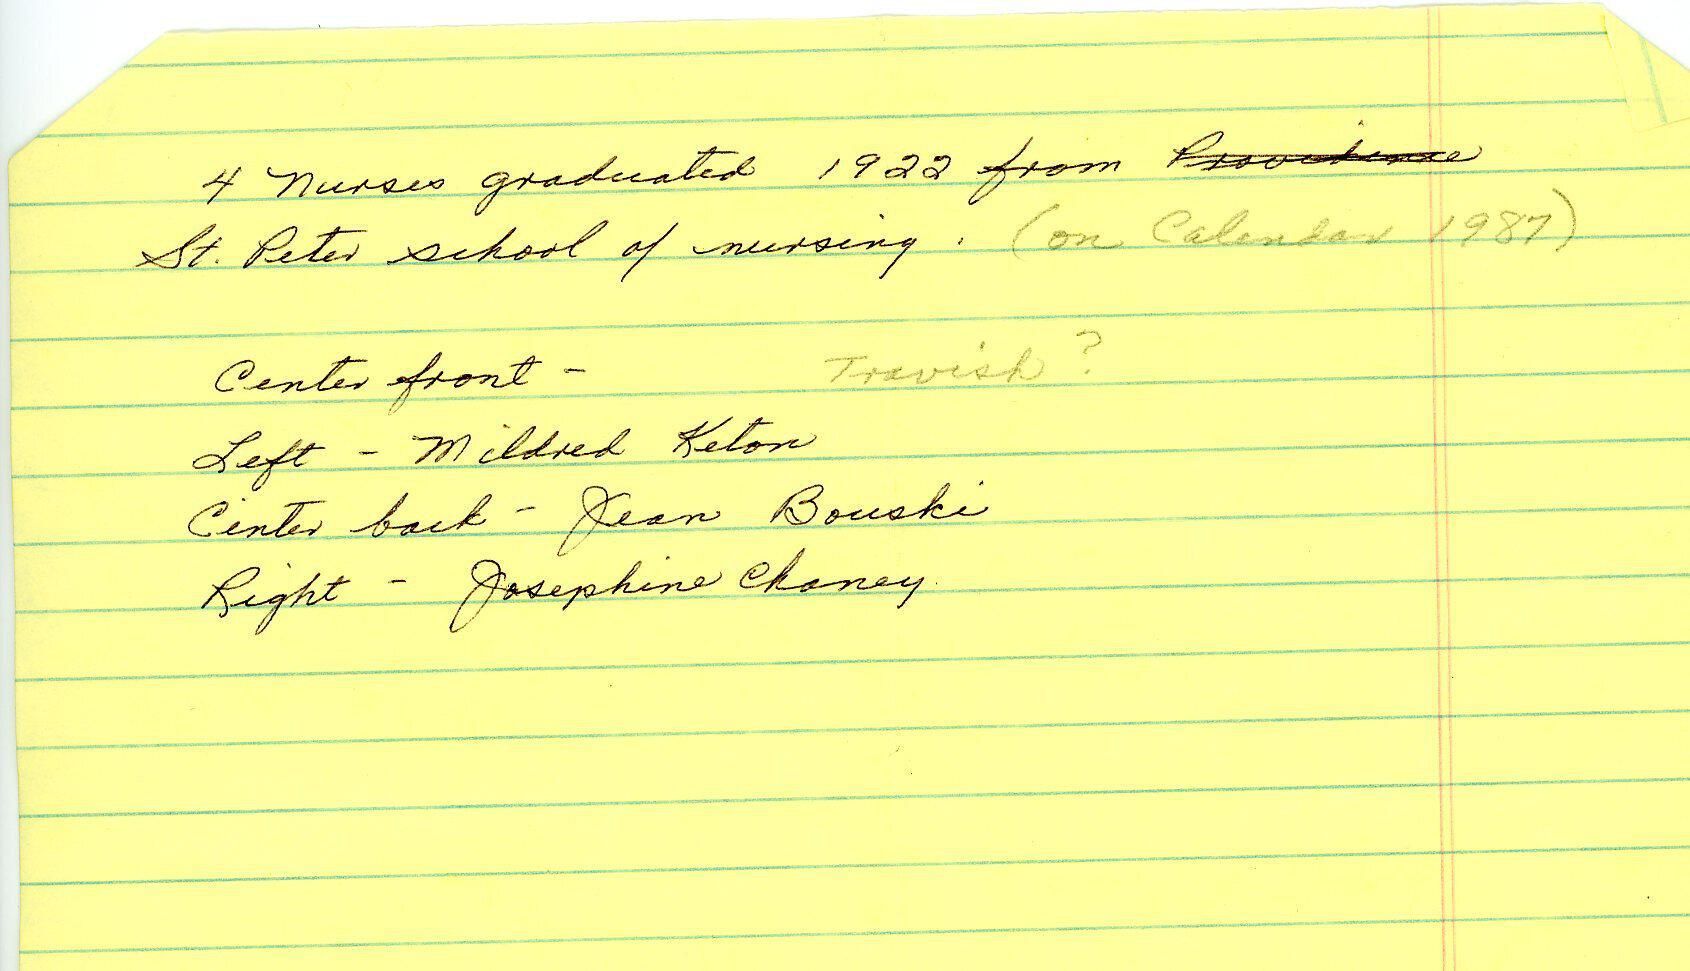 4 Nurses graduated 1922 from Providence
St. Peter school of nursing. (on Calendar 1987)
Center front - Travish ?
Left - Mildred Keton
Center back - Jean Bouski
Right - Josephine Chaney